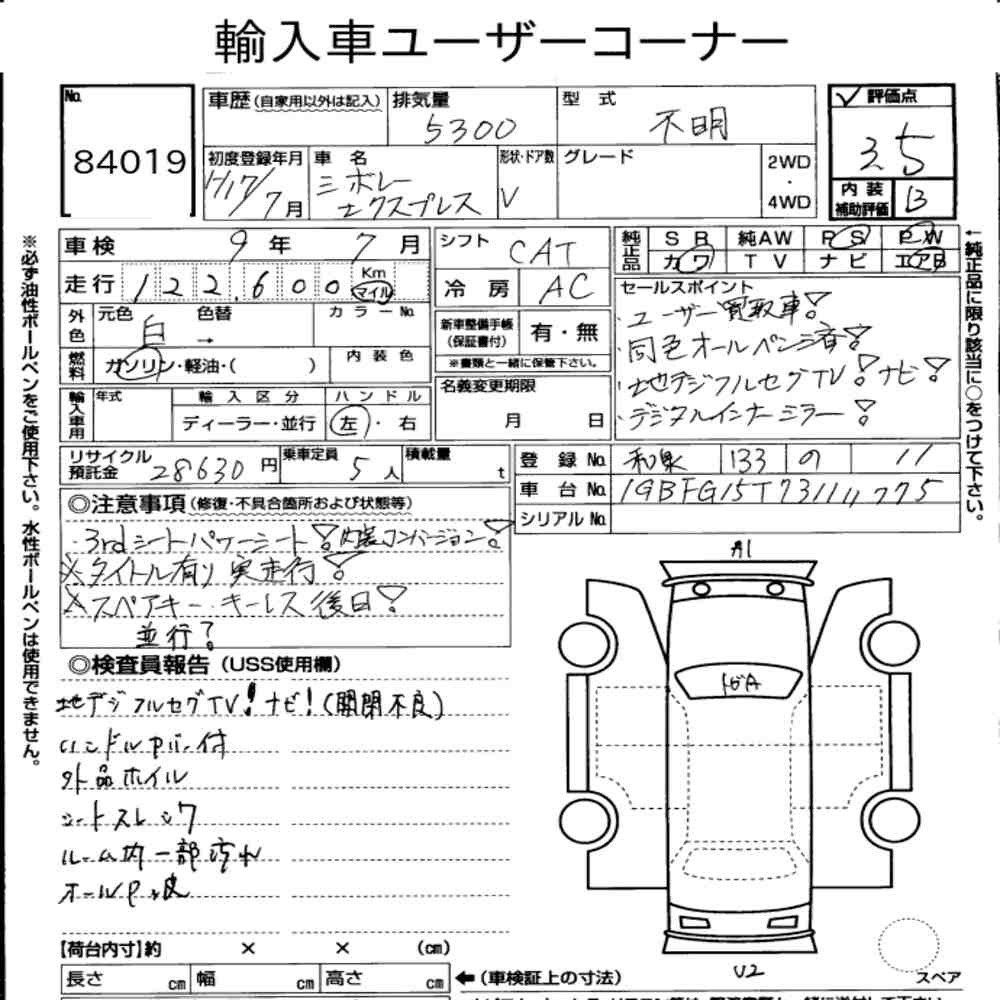 輸入車ユーザーコーナー
No.
84019
車歴(自家用以外は記入)
排気量
5300
型 式
不明
評価点
3.5
初度登録年月
H17/7月
車 名
シボレー
エクスプレス
形状・ドア数
V
グレード
2WD
・
4WD
内 装
補助評価
B
※必ず油性ボールペンをご使用下さい。水性ボールペンは使用できません。
車 検
9年 7月
走 行
122,600
Km
マイル
外色
元色
白
色替
→
カラーNo.
燃料
ガソリン・軽油・( )
内 装 色
輸入車用
年式
輸 入 区 分
ディーラー・並行
ハ ン ド ル
左・右
シフト
CAT
冷 房
AC
新車整備手帳
(保証書付)
有・無
※書類と一緒に保管下さい。
名義変更期限
月 日
純正品
S R
純AW
P S
P W
カワ
T V
ナビ
エアB
←純正品に限り該当に○をつけて下さい。
セールスポイント
・ユーザー買取車!
・同色オールペン済!
・地デジフルセグTV!ナビ!
・デジタルインナーミラー!
リサイクル
預託金
28630円
乗車定員
5人
積載量
t
登 録 No.
和泉 133 の 11
車 台 No.
1GBFG15T731111775
シリアルNo.
◎注意事項(修復・不具合箇所および状態等)
・3rdシートパワーシート!内装コンバージョン!
※タイトル有り 実走行!
※スペアキー・キーレス後日!
並行?
◎検査員報告(USS使用欄)
地デジフルセグTV!ナビ!(開閉不良)
ハンドルカバー付
外品ホイル
シートスレ シワ
ルーム内一部汚れ
オールP.
A1
トビA
U2
スペア
【荷台内寸】約 × × (cm)
長さ cm
幅 cm
高さ cm
←(車検証上の寸法)